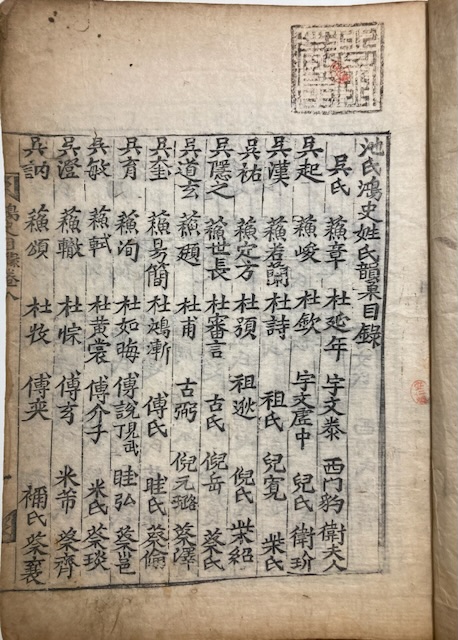 池氏鴻史姓氏韻彙目錄
吳氏 蘓章 杜延年 宇文泰 西門豹 衛夫人
吳起 蘓峻 杜欽 宇文虛中 兒氏 衛玠
吳漢 蘓若蘭 杜詩 祖氏 兒寬 柴氏
吳祐 蘓定方 杜預 祖逖 倪氏 柴紹
吳隱之 蘓世長 杜審言 古氏 倪岳 蔡氏
吳道玄 蘓頲 杜甫 古弼 倪元璐 蔡澤
吳奎 蘓易簡 杜鴻漸 傅氏 眭氏 蔡倫
吳育 蘓洵 杜如晦 傅說見武丁 眭弘 蔡邕
吳敏 蘓軾 杜黃裳 傅介子 米氏 蔡琰
吳澄 蘓轍 杜悰 傅玄 米芾 蔡齊
吳訥 蘓頌 杜牧 傅奕 禰氏 蔡襄
鴻史目錄卷八